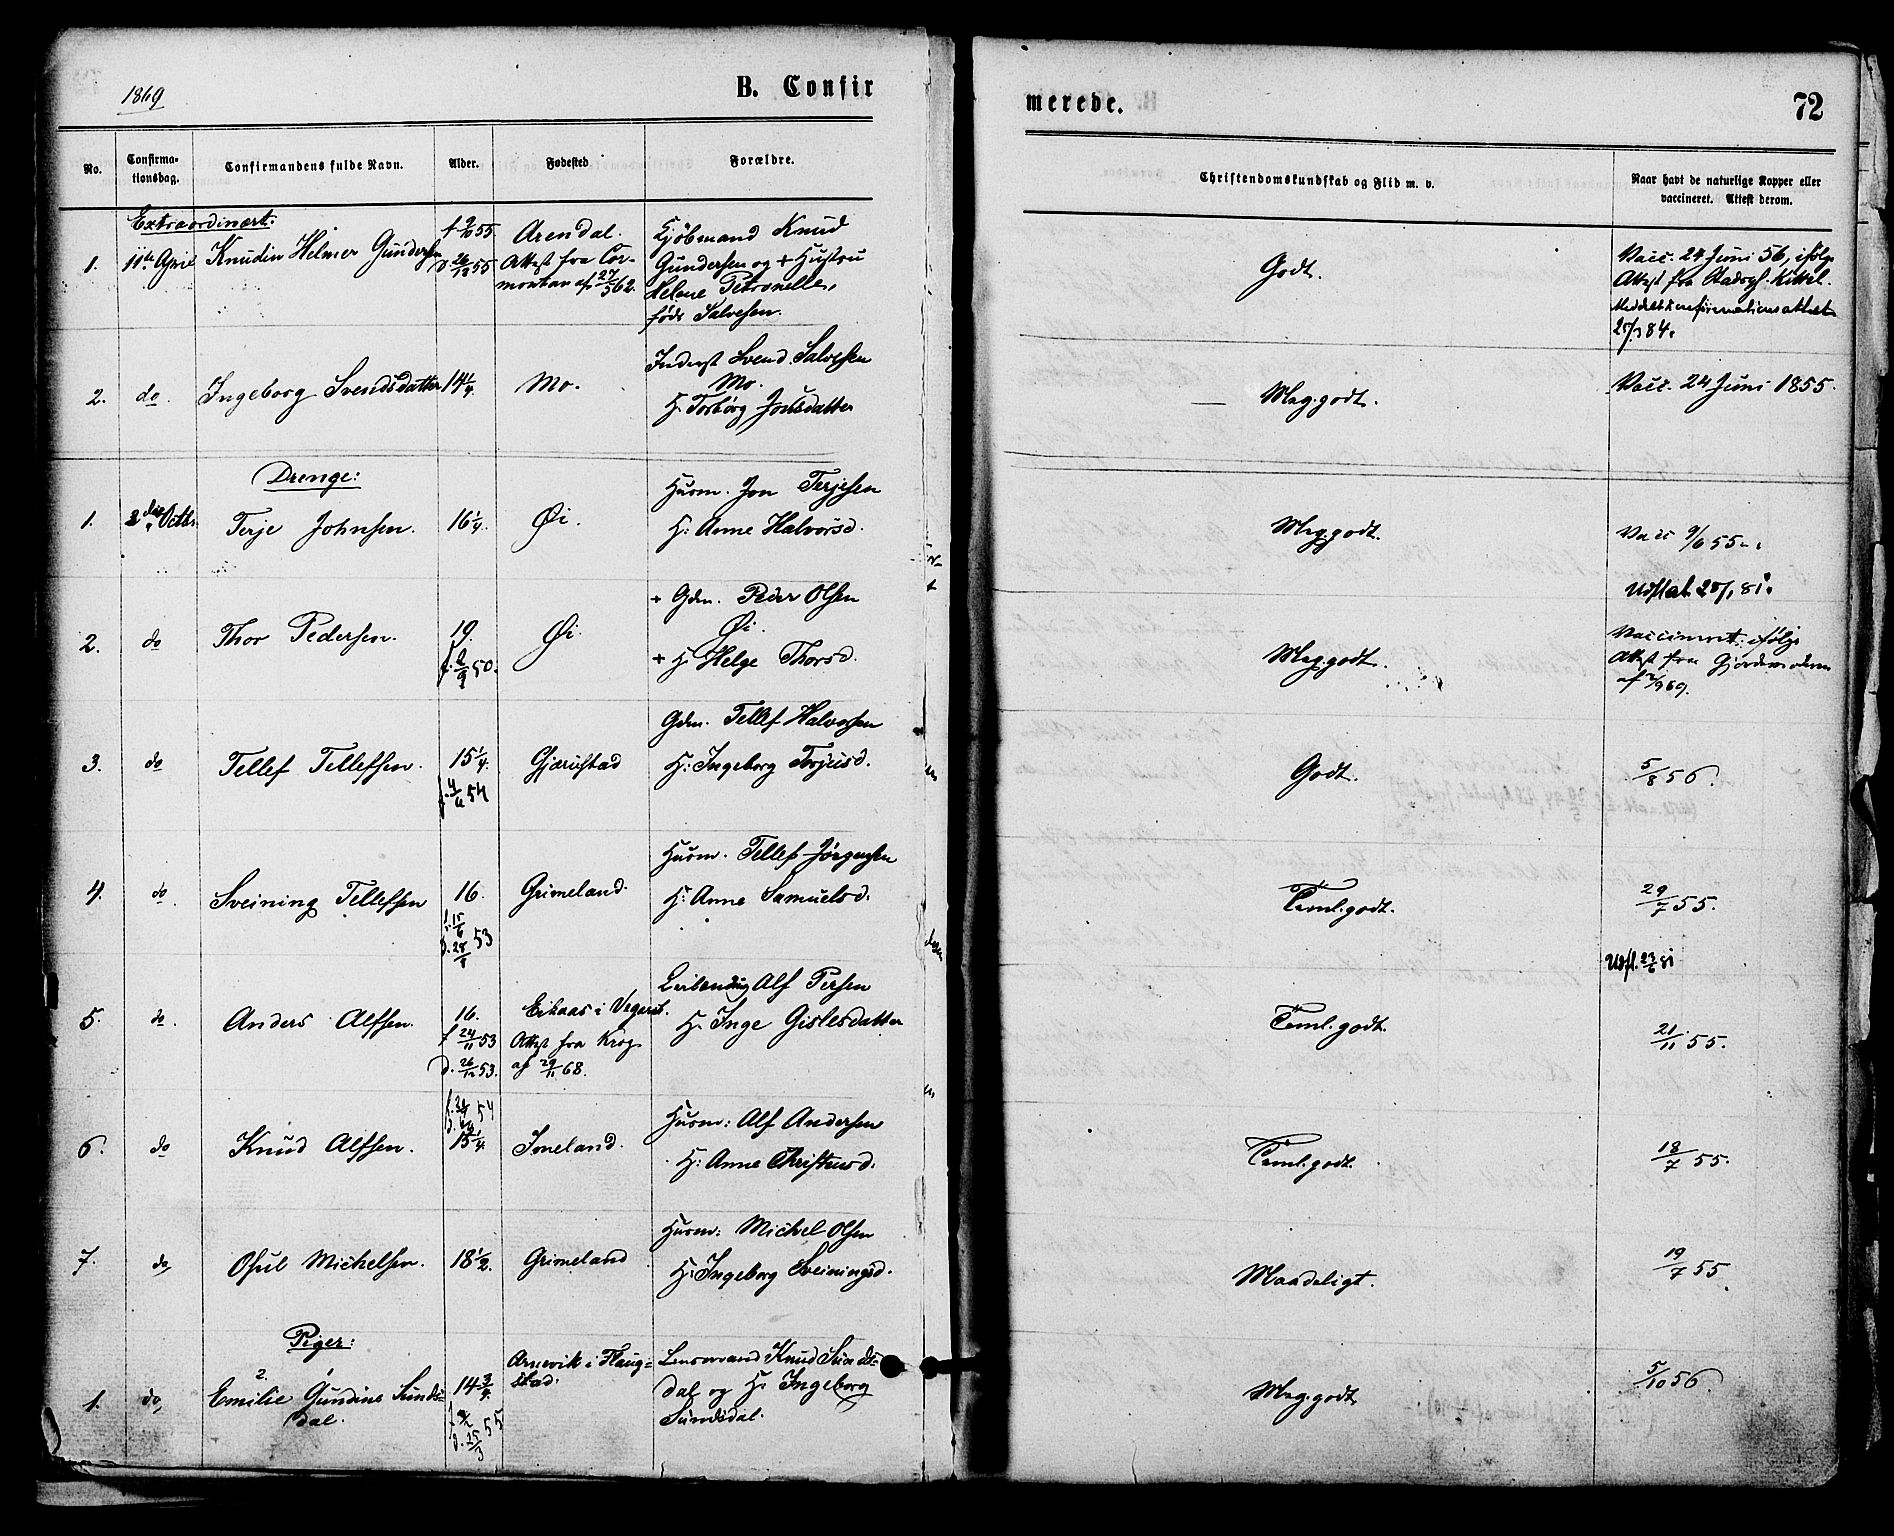 1869
B. Confir
merede.
72
No.
Confirma-
tionsdag.
Confirmandens fulde Navn.
Alder.
Fødested
Forældre.
Christendomskundskab og Flid m. v.
Naar havt de naturlige Kopper eller
vaccineret. Attest derom.
Extraordinært:
1.
11te April
Knudin Helmer Gundersen
55
d. 26/12 55
Arendal.
Attest fra
af 27/5 62.
Kjøbmand Knud
Gundersen og + Hustru
Helene Petronelle,
født Salvesen.
Godt.
Vacc. 24 Juni 56, ifølge
Attest fra Kittel.
Meddelt Confirmationsattest
84.
2.
do.
Ingeborg Svendsdatter
14 1/4
Mo.
Inderst Svend Salvesen
Mo.
H. Torborg Jonsdatter
Meg. godt.
Vacc. 24 Juni 1855.
Drenge:
1.
2den Octbr.
Terje Johnsen.
16 1/4.
Øi.
Husm. Jon Terjesen
H: Anne Halvorsd.
Meg. godt.
Vacc 9/6 55.
2.
do
Thor Pedersen.
19.
f. 50.
Øi
+ Gdm. Peder Olsen
Øi.
+ H. Helge Thorsd.
Meg. godt.
81.
Vaccineret ifølge
Attest fra Gjordemoderen
af 69.
3.
do
Tellef Tellefsen.
15 1/4.
f. 4/6 54
Gjærustad
Gdm. Tellef Halvorsen
H: Ingeborg Terjusd.
Godt.
5/8 56.
4.
do.
Sveining Tellefsen
16.
f. 15/6
d. 53
Grimeland.
Husm. Tellef Jørgensen
H: Anne Samuelsd.
Teml. godt.
29/7 55.
5.
do.
Anders Alfsen.
16.
f 24/11 53
d. 26/12 53.
Eikaas i Vegarsh.
Attest fra Krog
af 29/11 68.
Leilænding Alf Persen
H. Inge Gislesdatter
Teml. godt.
21/11 55.
6.
do
Knud Alfsen.
54
15 1/4.
Imeland.
Husm: Alf Andersen
H: Anne Christensd.
Teml. godt.
18/7 55.
7.
do,
Osul Michelsen.
18 1/2.
Grimeland
Husm: Michel Olsen
H: Ingeborg Sveiningsd.
Maadeligt.
19/7 55
Piger:
1.
do,
2
1
Emilie Gundine Sunds-
dal.
14 3/4.
55
d. 25/3
Arnevik i Flaug-
stad.
Lensmand Knud Sunds-
dal og H. Ingeborg
Sundsdal.
Meg. godt
5/10 56.